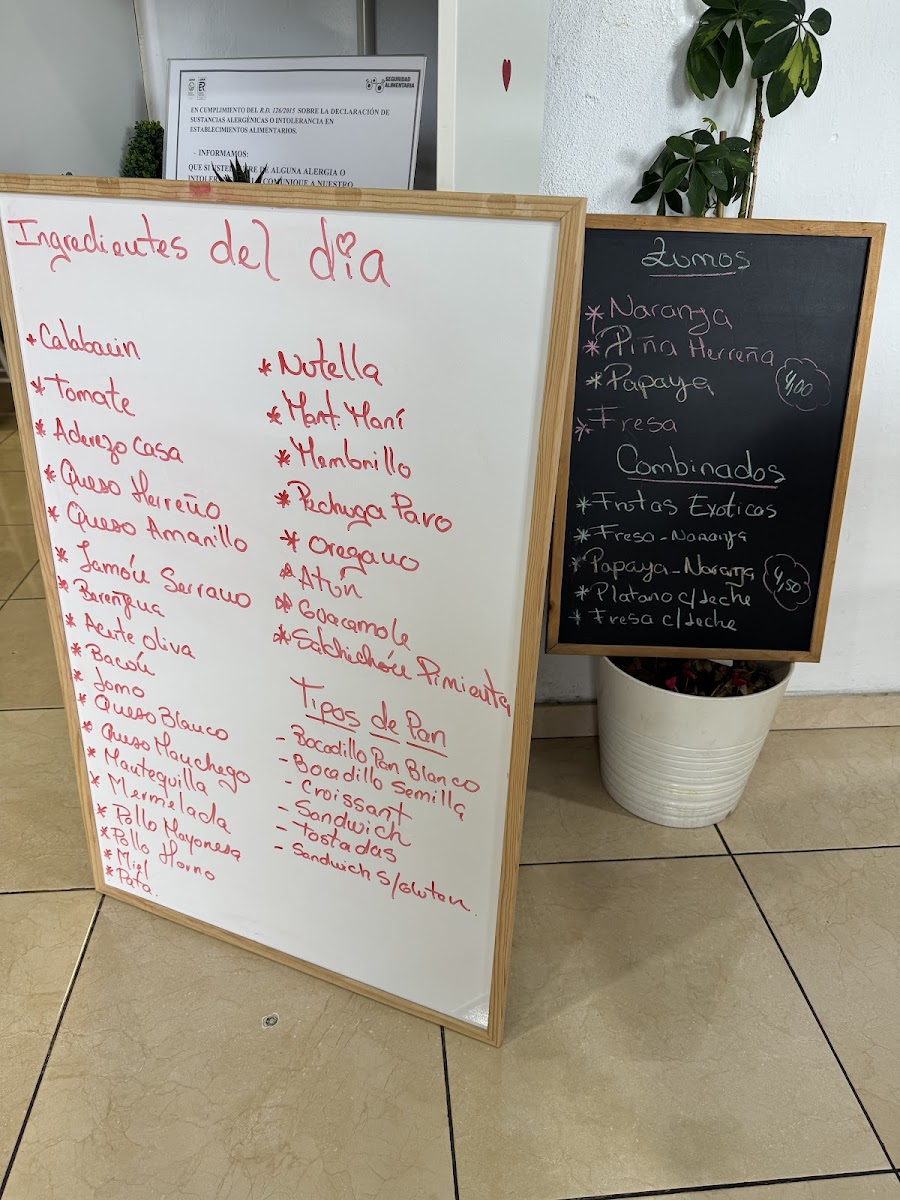 SEGURIDAD
ALIMENTARIA
EN CUMPLIMIENTO DEL R.D. 126/2015 SOBRE LA DECLARACIÓN DE
SUSTANCIAS ALERGÉNICAS O INTOLERANCIA EN
ESTABLECIMIENTOS ALIMENTARIOS.
- INFORMAMOS:
QUE SI USTED DE ALGUNA ALERGIA O
COMUNIQUE A NUESTRO
Ingredientes del día
* Calabacin
* Tomate
* Aderezo casa
* Queso Herreño
* Queso Amarillo
* Jamón Serrano
* Berengena
* Aceite oliva
* Bacón
* Lomo
* Queso Blanco
* Queso Manchego
* Mantequilla
* Mermelada
* Pollo Mayonesa
* Pollo Horno
* Miel
* Pata.
* Nutella
* Mant. Maní
* Membrillo
* Pechuga Pavo
* Oregano
* Atún
* Guacamole
* Salchichón Pimienta
Tipos de Pan
- Bocadillo Pan Blanco
- Bocadillo Semilla
- Croissant
- Sandwich
- Tostadas
- Sandwich S/Gluten.
Zumos
* Naranja
* Piña Herreña
* Papaya
4,00
* Fresa
Combinados
* Frutas Exoticas
* Fresa-Naranja
* Papaya-Naranja
4,50
* Platano c/Leche
* Fresa c/Leche